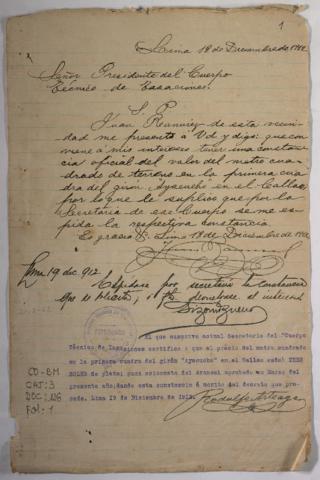 1
Lima 18 de Diciembre de 1912
Señor Presidente del Cuerpo
Técnico de Tasaciones.
S. P.
Juan Ramirez de esta vecin
dad me presento á Vd y digo: que con
viene á mis intereses tener una constan
cia oficial del valor del metro cua
drado de terreno en la primera cua
dra del giron Ayacucho en el Callao;
por lo que le suplico que por la
Secretaria de ese Cuerpo se me ex
pida la respectiva constancia
Es gracia &. Lima 18 de Diciembre de 1912
Lima 19 dic. 912
Expídase por secretaría la constancia
que se solicita, y
El que suscribe actual Secretario del "Cuerpo
Técnico de Tasaciones certifica: que el précio del metro cuadrado
en la primera cuadra del girón "Ayacucho" en el Callao es de TRES
SOLES de plata; para
presente año, dando esta constancia á mérito del decreto que
precede. Lima 19 de Diciembre de 1912.
Rodulfo Arteaga
CD-BM
CAT: 3
DOC: 126
Fol: 1